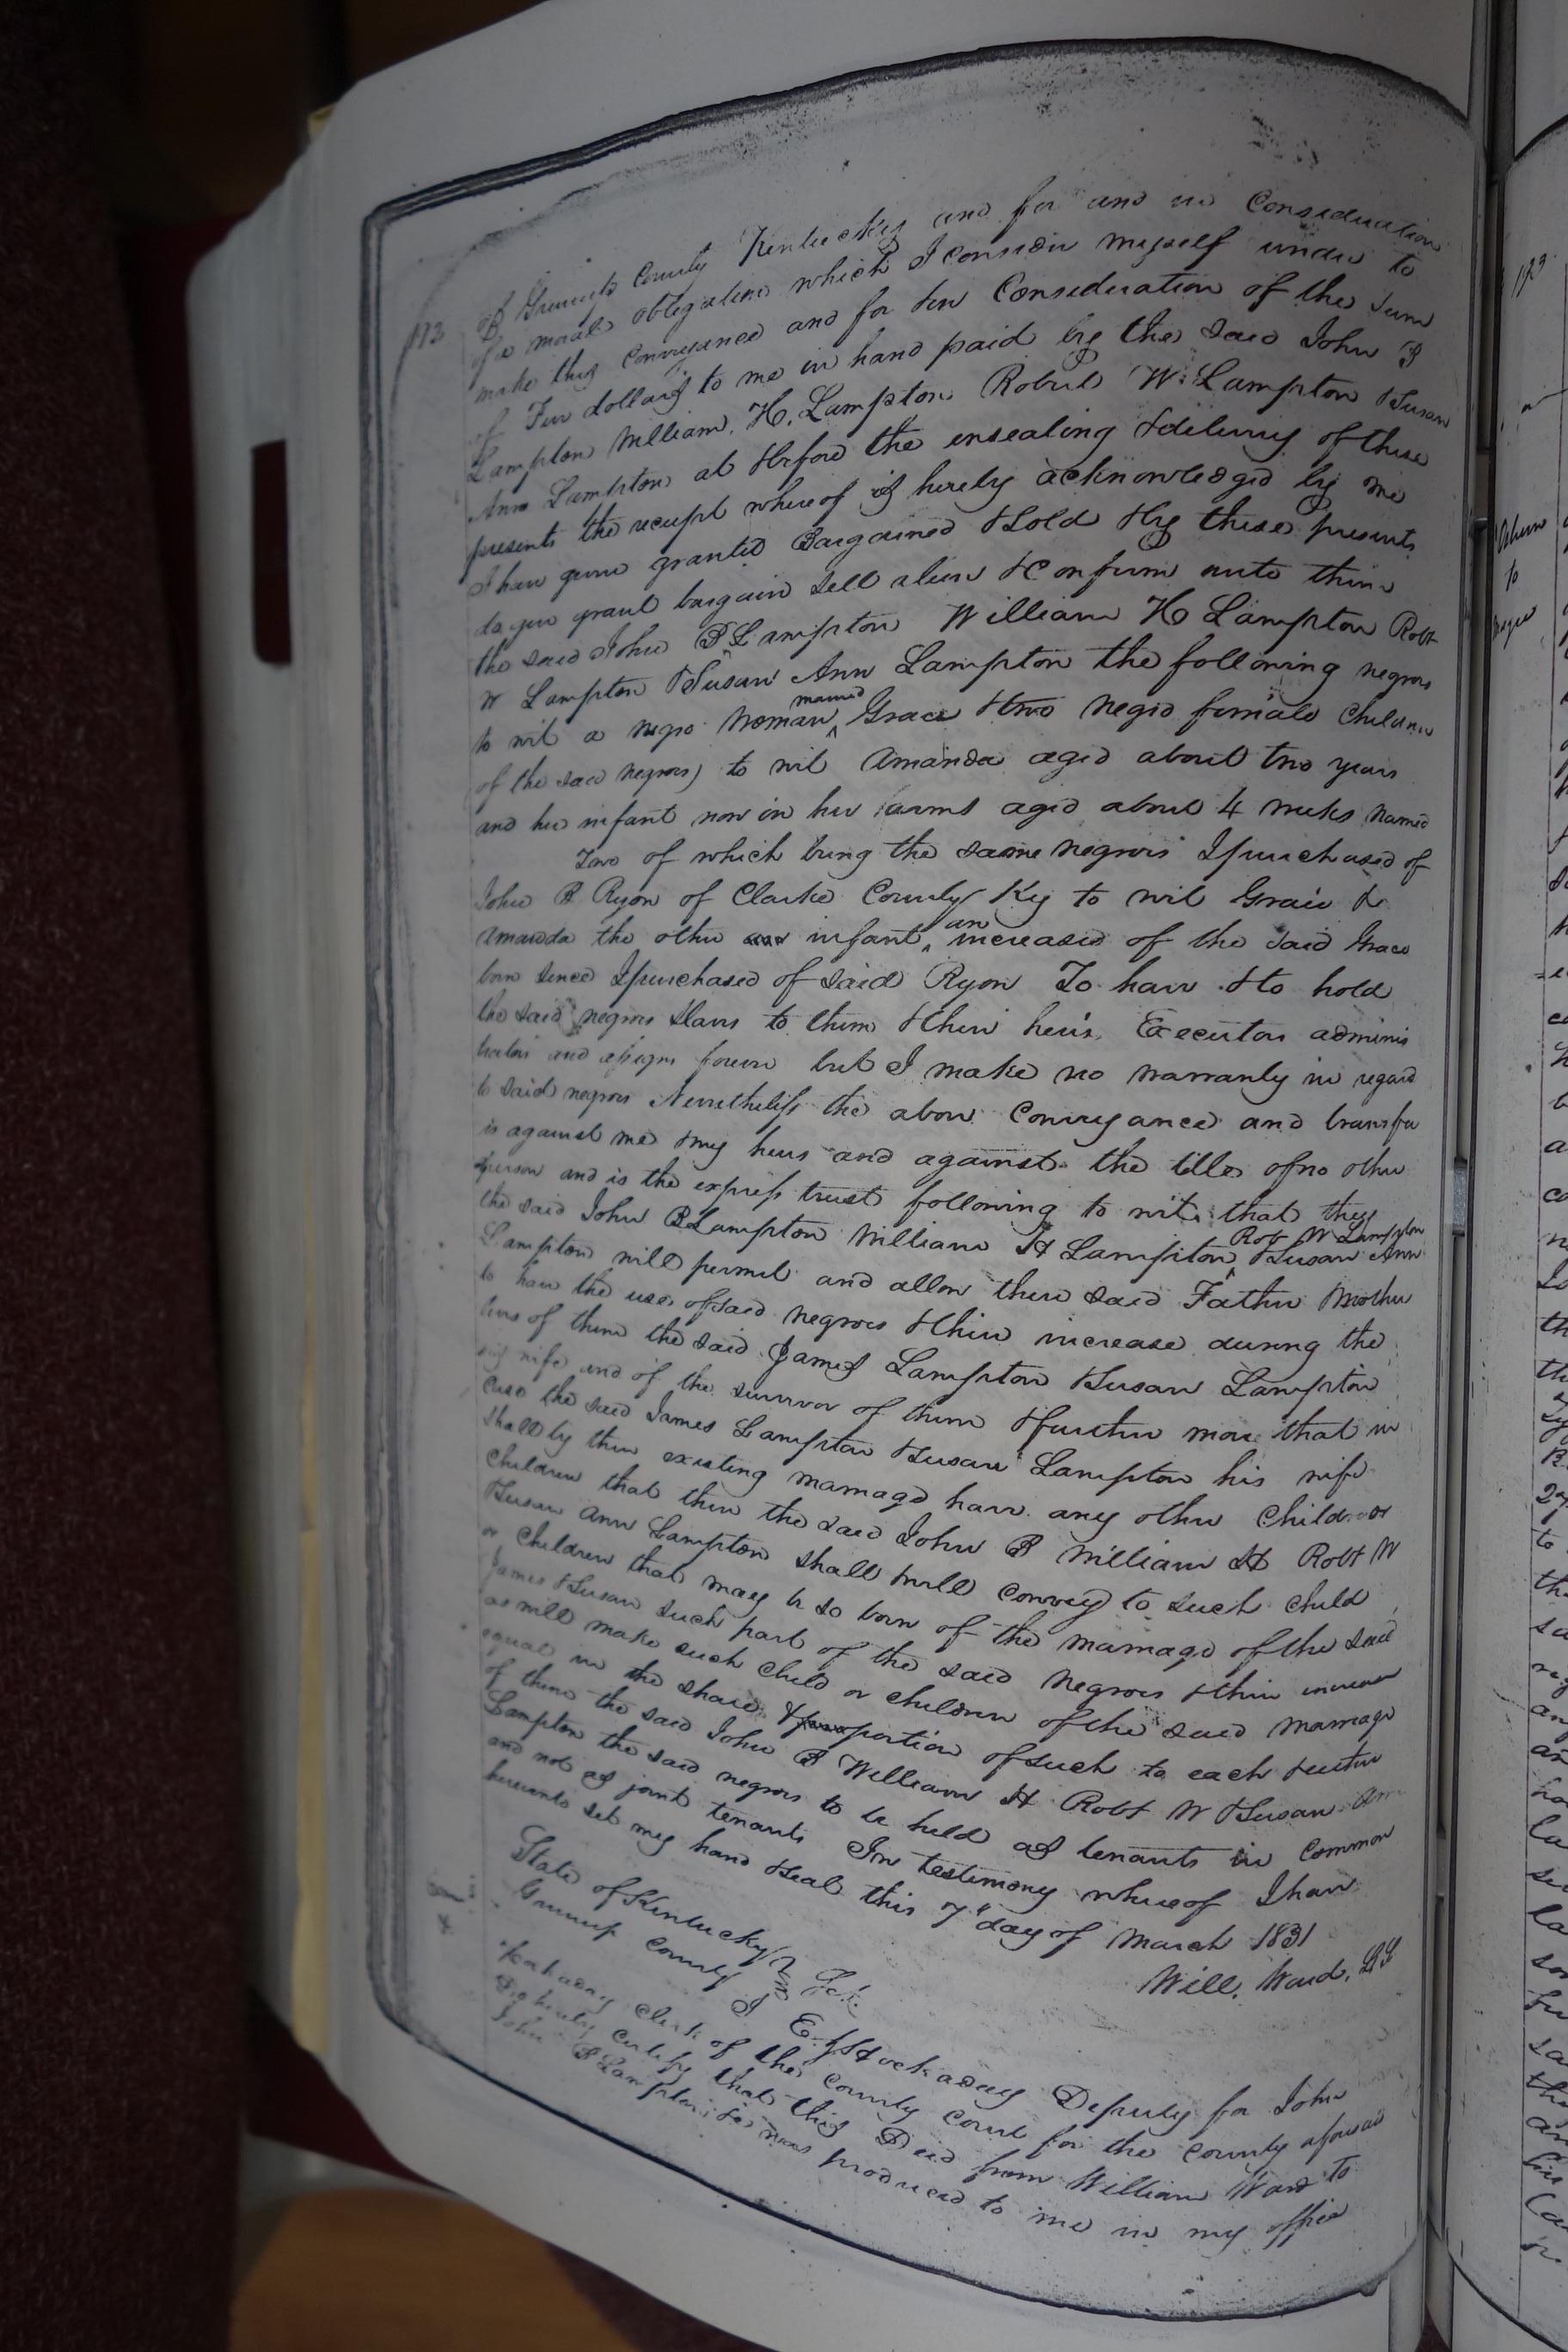 173
of Greenup County Kentucky and for and in Consideration
of a moral obligation which I consider myself under to
make this conveyance and for ten Consideration of the Sum
of Five dollars to me in hand paid by the said John B
Lampton William. H. Lampton Robert W. Lampton & Susan
Ann Lampton at & before the ensealing & delivery of these
presents the receipt whereof is hereby acknowledged by me
I have given granted Bargained & Sold & by these presents
do give grant bargain sell alien & Confirm unto them
the said John B Lampton William H Lampton Robt
W Lampton & Susan Ann Lampton the following negroes
to wit a negro Woman named Grace & two negro female children
of the said negroes, to wit Amanda aged about two years
and her infant now in her arms aged about 4 weeks named
Two of which being the same negroes I purchased of
John R Ryon of Clarke County Ky to wit Grace &
Amanda the other infant an increase of the said Grace
born since I purchased of said Ryon To have & to hold
the said negroes Slaves to them & their heirs Executors adminis
trators and assigns forever but I make no warranty in regard
to said negroes Nevertheless the above Conveyance and transfer
is against me & my heirs and against the title of no other
person and is the express trust following to wit that they
the said John B Lampton William H Lampton Rob W Lampton & Susan Ann
Lampton will permit and allow their said Father & Mother
to have the use of said negroes & their increase during the
lives of them the said James Lampton & Susan Lampton
his wife and of the survivor of them & further more that in
case the said James Lampton & Susan Lampton his wife
shall by their existing marriage have any other Child or
Children that then the said John B William H Robt W
& Susan Ann Lampton shall & will convey to such child
or children that may be so born of the marriage of the said
James & Susan such part of the said negroes & their increase
as will make such child or children of the said marriage
equal in the share & portion of such to each &
of them the said John B William H Robt W & Susan Ann
Lampton the said negroes to be held as tenants in Common
and not as joint tenants In testimony whereof I have
hereunto set my hand & seal this 7th day of March 1831
Will. Ward. LS
State of Kentucky
Greenup County Sct.
I E. Hockaday Deputy for John
Hockaday Clerk of the County Court for the County aforesaid
Do hereby Certify that this Deed from William Ward to
John B Lampton &c was produced to me in my office
173
to